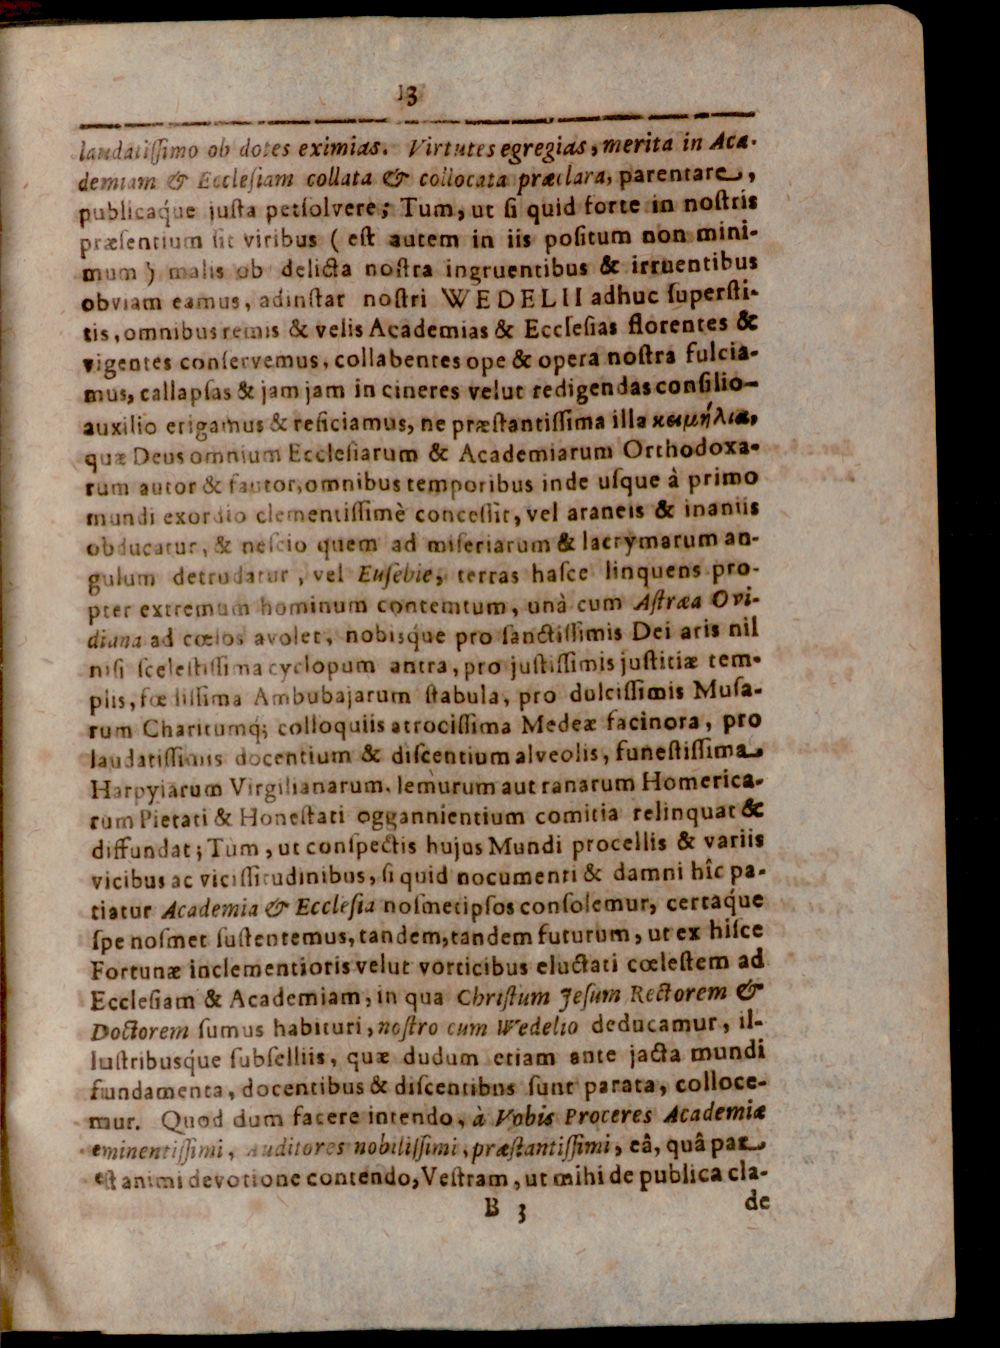 13
laudatiſſimo ob dotes eximias. Virtutes egregias, merita in Aca-
demiam & Eccleſiam collata & collocata præclara, parentare,
publicaq́ue juſta perſolvere; Tum, ut ſi quid forte in noſtris
præſentium ſit viribus ( eſt autem in iis poſitum non mini-
mum ) malis ob delicta noſtra ingruentibus & irruentibus
obviam eamus, adinſtar noſtri WEDELII adhuc ſuperſti-
tis, omnibus remis & velis Academias & Eccleſias florentes &
vigentes conſervemus, collabentes ope & opera noſtra fulcia-
mus, collapſas & jam jam in cineres velut redigendas conſilio
auxilio erigamus & reficiamus, ne præſtantiſſima illa κειμήλια,
quæ Deus omnium Eccleſiarum & Academiarum Orthodoxa-
rum autor & fautor, omnibus temporibus inde uſque à primo
mundi exordio clementiſſimè conceſſit, vel araneis & inaniis
obducatur, & neſcio quem ad miſeriarum & lacrymarum an-
gulum detrudatur, vel Euſebie, terras haſce linquens pro-
pter extremum hominum contemtum, unà cum Aſtræa Ovi-
diana ad cœlos avolet, nobisque pro ſanctiſſimis Dei aris nil
niſi ſceleſtiſſima cyclopum antra, pro juſtiſſimis juſtitiæ tem-
plis, fœdiſſima Ambubajarum ſtabula, pro dulciſſimis Muſa-
rum Charitumq́; colloquiis atrociſſima Medeæ facinora, pro
laudatiſſimis docentium & diſcentium alveolis, funeſtiſſima
Harpyiarum Virgilianarum, lemurum aut ranarum Homerica-
rum Pietati & Honeſtati oggannientium comitia relinquat &
diffundat; Tum, ut conſpectis hujus Mundi procellis & variis
vicibus ac viciſſitudinibus, ſi quid nocumenti & damni hîc pa-
tiatur Academia & Eccleſia noſmetipſos conſolemur, certaq́ue
ſpe noſmet ſuſtentemus, tandem, tandem futurum, ut ex hiſce
Fortunæ inclementioris velut vorticibus eluctati cœleſtem ad
Eccleſiam & Academiam, in qua Chriſtum Jeſum Rectorem &
Doctorem ſumus habituri, noſtro cum Wedelio deducamur, il-
luſtribusq́ue ſubſelliis, quæ dudum etiam ante jacta mundi
fundamenta, docentibus & diſcentibus ſunt parata, colloce-
mur. Quod dum facere intendo, à Vobis Proceres Academiæ
eminentiſſimi, Auditores nobiliſſimi, præſtantiſſimi, eâ, quâ par
eſt animi devotione contendo, Veſtram, ut mihi de publica cla-
B 3 de